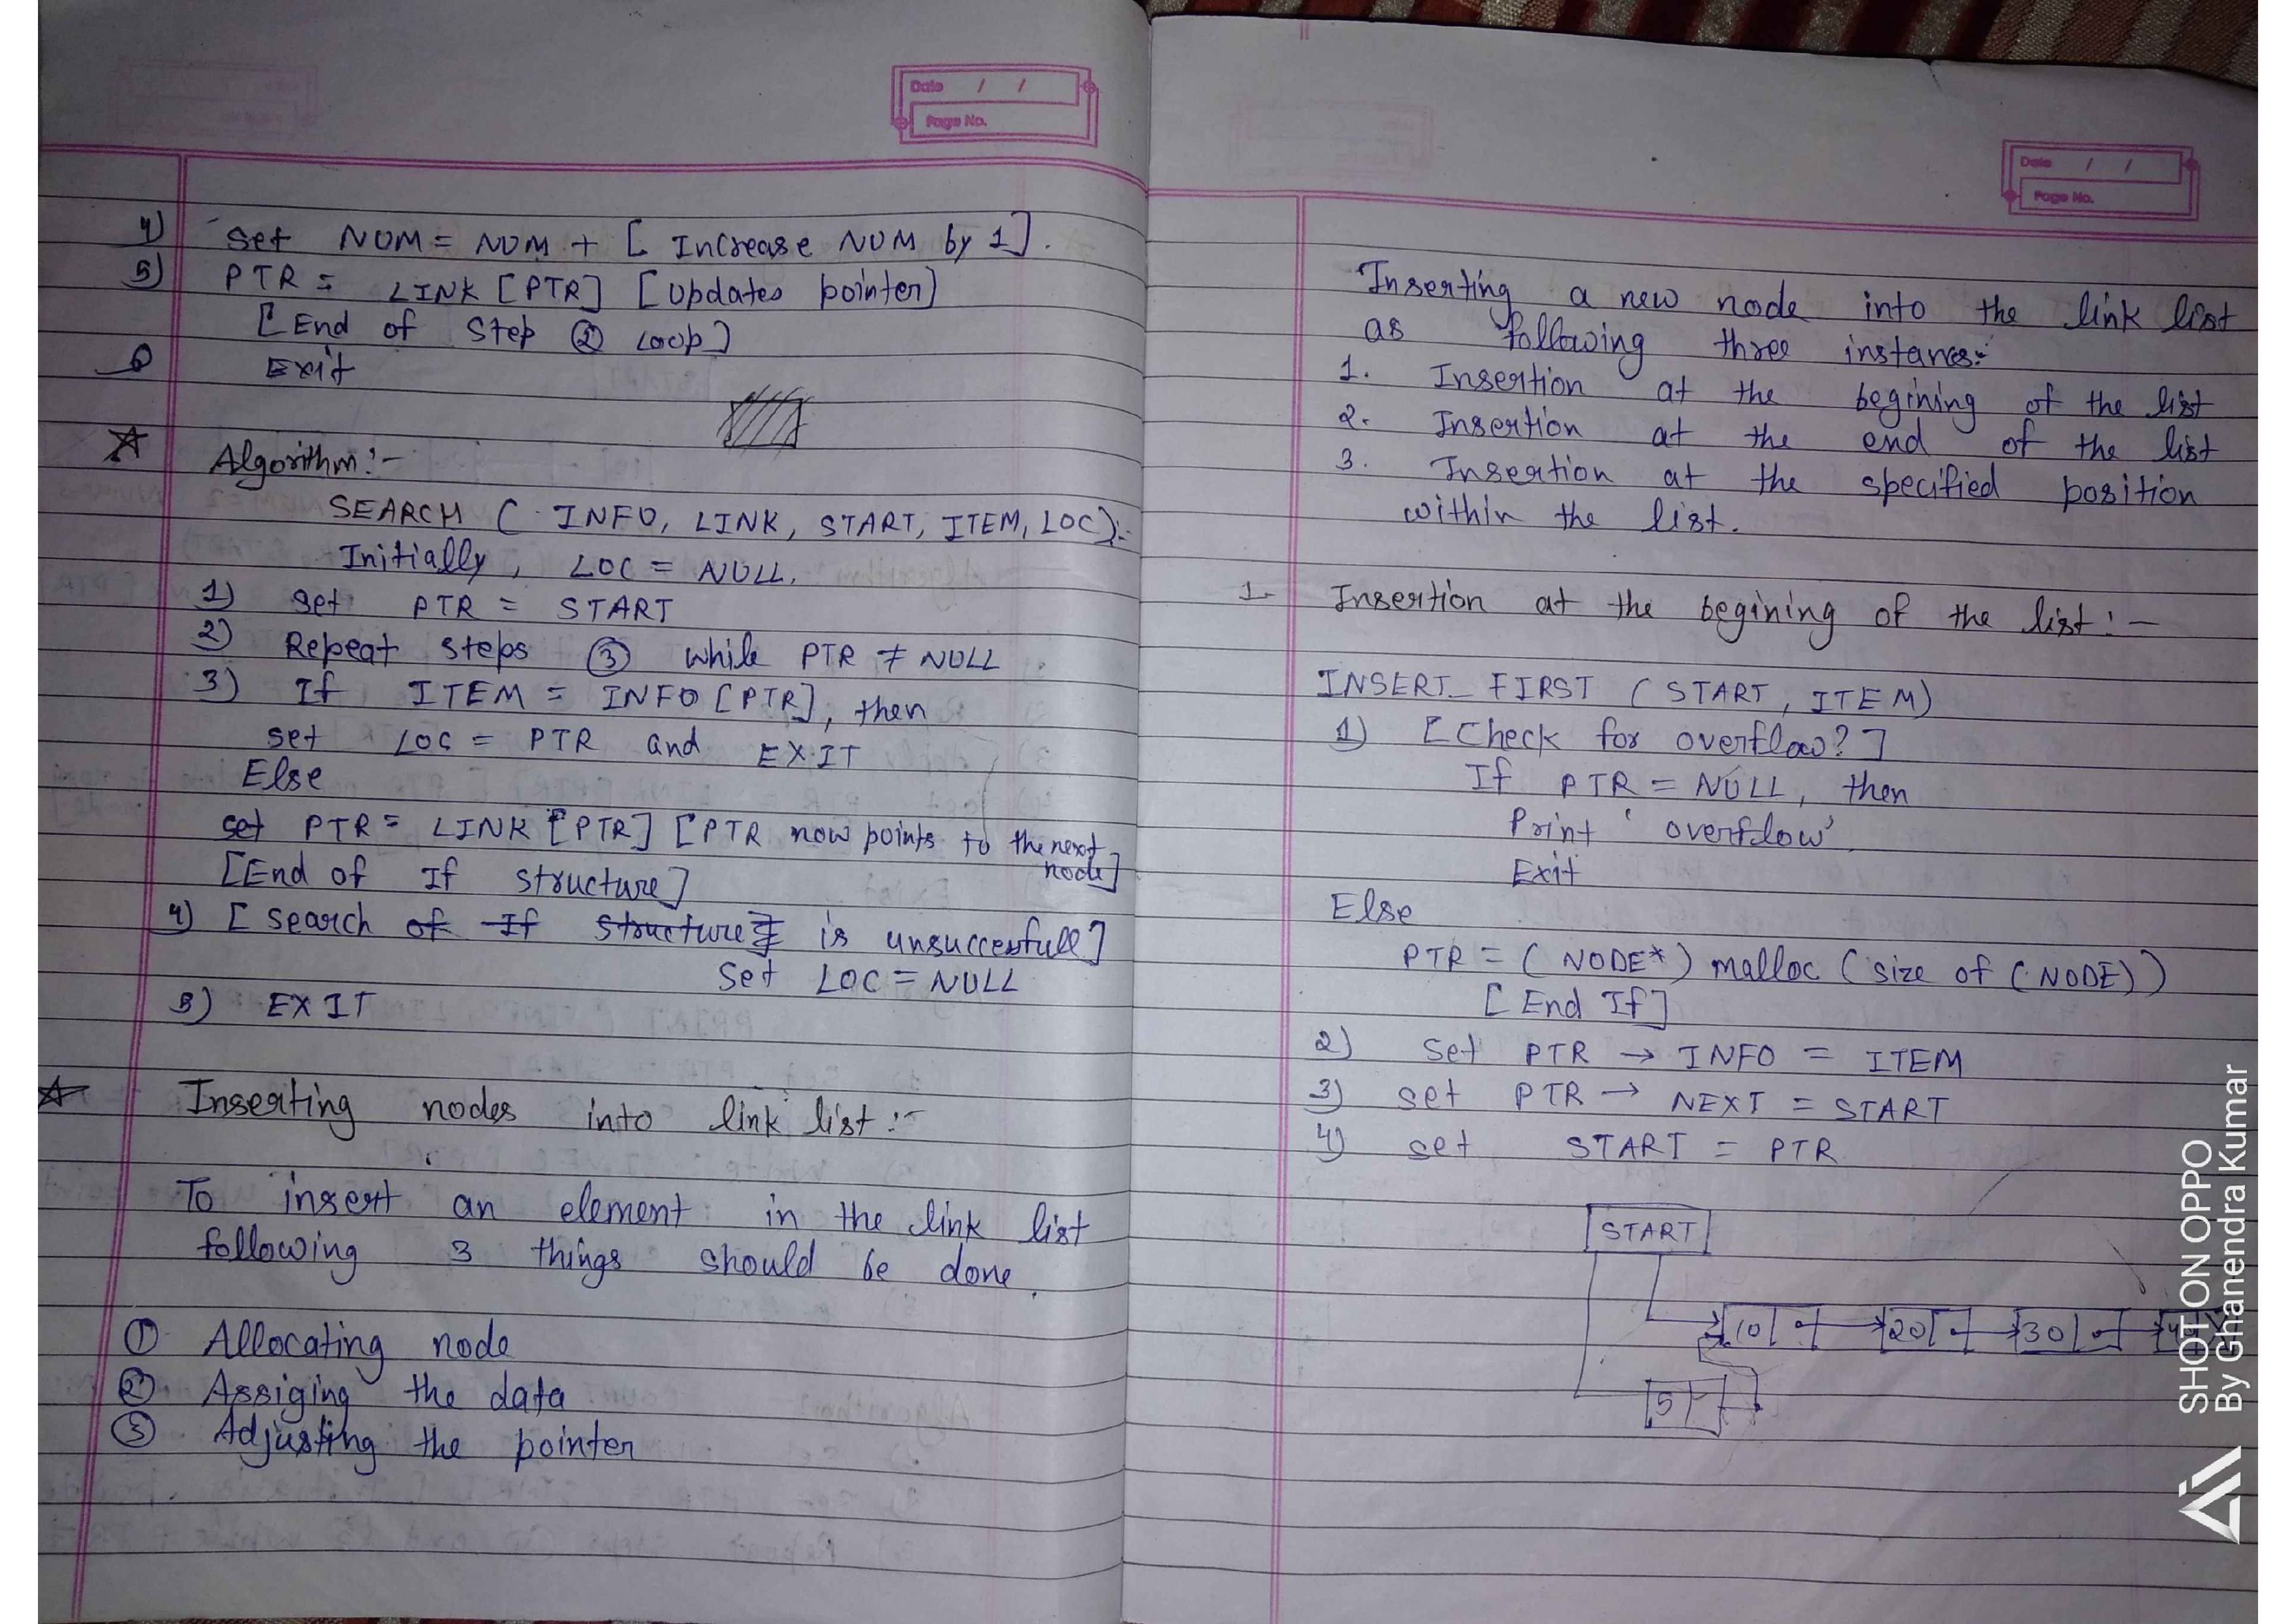 Date / /
Page No.
4) Set NUM = NUM + [ Increase NUM by 1].
5) PTR = LINK [PTR] [Updates pointer]
[End of Step ② Loop]
6 Exit
Algorithm:-
SEARCH ( INFO, LINK, START, ITEM, LOC):-
Initially, LOC = NULL.
1) Set PTR = START
2) Repeat steps ③ while PTR ≠ NULL
3) If ITEM = INFO [PTR], then
set LOC = PTR and EXIT
Else
set PTR = LINK [PTR] [PTR now points to the next
node]
[End of If structure]
4) [ Search of If structure] is unsuccesfull]
Set LOC = NULL
5) EXIT
Inserting nodes into link list :-
To insert an element in the link list
following 3 things should be done.
① Allocating node
② Assiging the data
③ Adjusting the pointer
Date / /
Page No.
Inserting a new node into the link list
as following three instances:-
1. Insertion at the begining of the list
2. Insertion at the end of the list
3. Insertion at the specified position
within the list.
1. Insertion at the begining of the list :-
INSERT_FIRST (START, ITEM)
1) [Check for overflow?]
If PTR = NULL, then
Print 'overflow'
Exit
Else
PTR = (NODE*) malloc (size of (NODE))
[End If]
2) Set PTR → INFO = ITEM
3) set PTR → NEXT = START
4) set START = PTR
START
10 20 30
5
SHOT ON OPPO
By Ghanendra Kumar